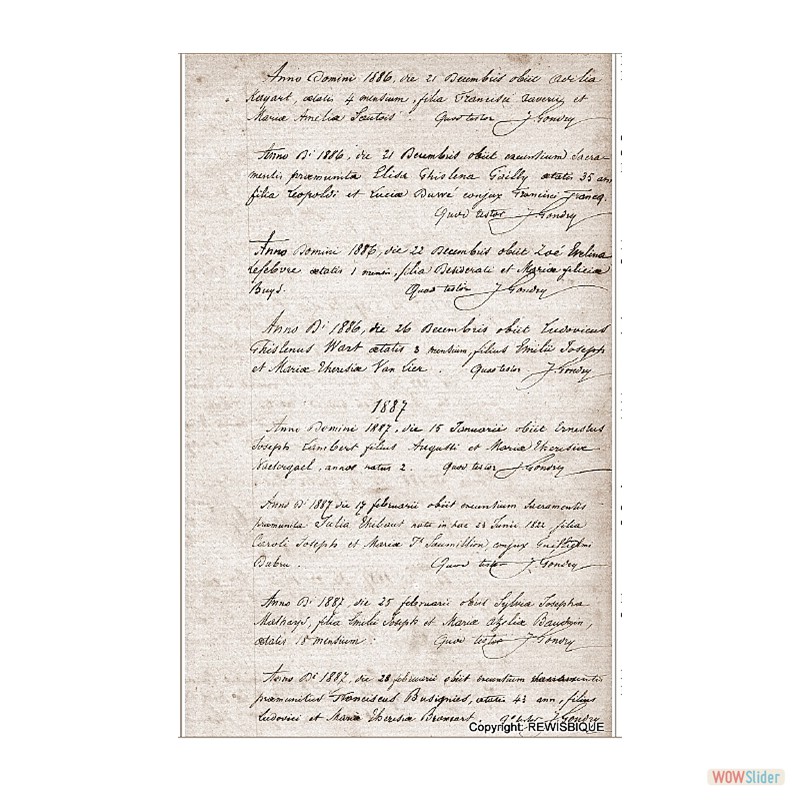 Anno Domini 1886, die 21 Decembris obiit
Kayart, ætatis 4 mensium, filia Francisci Xaverii et
Mariæ Ameliæ Sautois. Quod testor J. Gondry
Anno Di 1886, die 21 Decembris obiit omnium Sacra-
mentis præmunita Elisa Ghislena Gailly ætatis 35 ann
filia Leopoldi et Luciæ Burvé conjux Francisci Francq.
Quod testor J. Gondry
Anno Domini 1886, die 22 Decembris obiit Zoé Evelina
Lefebvre ætatis 1 mensis, filia Desiderati et Mariæ feliciæ
Buys. Quod testor J. Gondry
Anno Di 1886, die 26 Decembris obiit Ludovicus
Ghislenus Wart ætatis 3 mensium, filius Emilii Joseph
et Mariæ Theresiæ Van Lier. Quod testor J. Gondry
1887
Anno Domini 1887, die 15 Januarii obiit Ernestus
Joseph Lambert filius Augusti et Mariæ Theresiæ
annos natus 2. Quod testor J. Gondry
Anno Di 1887 die 17 februarii obiit omnium Sacramentis
præmunita Julia Thibaut nata in hac 23 Junii 1822 filia
Caroli Joseph et Mariæ Je Saumillion, conjux Guilhelmi
Dubru. Quod testor J. Gondry
Anno Di 1887, die 25 februarii obiit Sylvia Josepha
filia Emilii Joseph et Mariæ Azeliæ Bauduin,
ætatis 18 mensium. Quod testor J. Gondry
Anno Di 1887, die 28 februarii obiit omnium sacramentis
præmunitus Franciscus Busignies, ætatis 43 ann, filius
Ludovici et Mariæ Theresiæ Brancart. Qd testor J. Gondry
Copyright: REWISBIQUE
WOWSlider